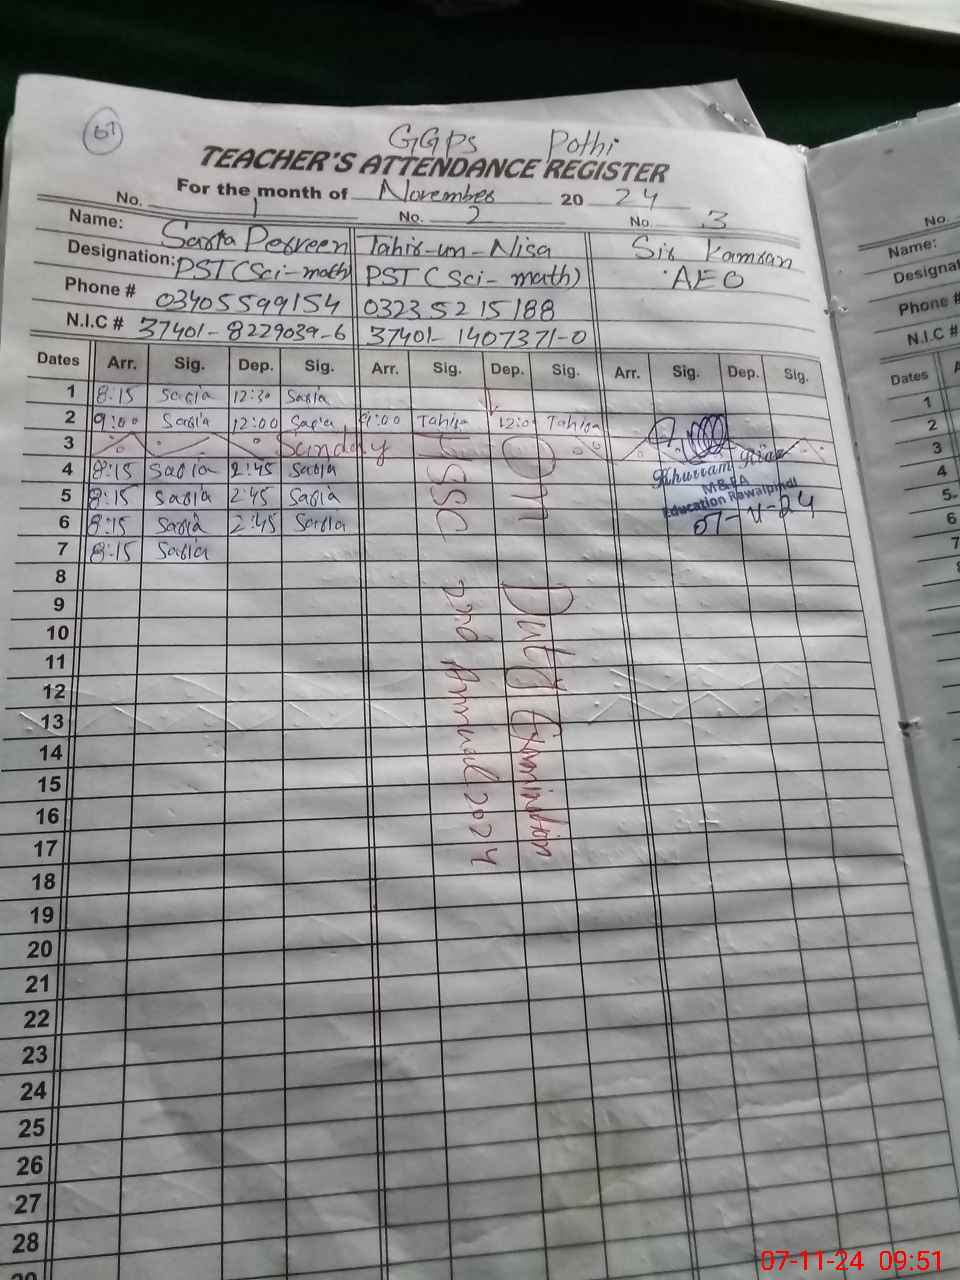 GGPS Pothi
TEACHER'S ATTENDANCE REGISTER
For the month of November 20 24
No. 1 No. 2 No. 3
Name: Perveen Tahir-un-Nisa Sir Kamran
Designation: PST (Sci-math) PST (Sci-math) AEO
Phone # 03405599154 0323 52 15188
N.I.C # 37401-8229039-6 37401-1407371-0
Dates Arr. Sig. Dep. Sig. Arr. Sig. Dep. Sig. Arr. Sig. Dep. Sig.
1 8:15 Safia 12:30 Safia
2 9:00 Safia 12:00 Safia 9:00 Tahira 12:00 Tahira
3 Sunday
4 8:15 Safia 2:45 Safia
5 8:15 Safia 2:45 Safia
6 8:15 Safia 2:45 Safia
7 8:15 Safia
8
9
10
11
12
13
14
15
16
17
18
19
20
21
22
23
24
25
26
27
28
On Duty Examination
HSSC 2nd Annual 2024
Khurram Riaz
M&EA
Education Rawalpindi
07-11-24
No.
Name:
Designat
Phone #
N.I.C #
Dates
1
2
3
4
5
6
7
07-11-24 09:51